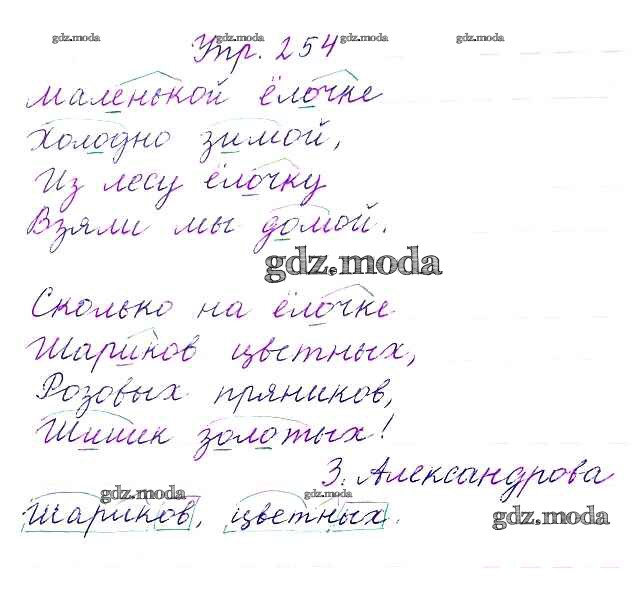 gdz.moda gdz.moda gdz.moda gdz.moda
Упр. 254
Маленькой ёлочке
Холодно зимой,
Из лесу ёлочку
Взяли мы домой.
gdz.moda
Сколько на ёлочке
Шариков цветных,
Розовых пряников,
Шишек золотых!
З. Александрова
gdz.moda gdz.moda
Шариков, цветных.
gdz.moda